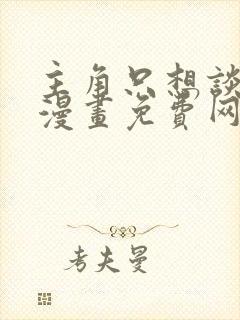 主角只想談
漫畫免費网
考夫曼